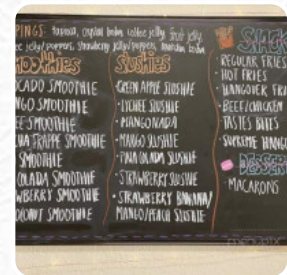 PINGS: tapioca, crystal boba, coffee jelly, fruit jelly,
jelly/poppers, strawberry jelly/poppers,
MOOTHIES
CADO SMOOTHIE
NGO SMOOTHIE
EE SMOOTHIE
HA FRAPPE SMOOTHIE
SMOOTHIE
COLADA SMOOTHIE
WBERRY SMOOTHIE
OCONUT SMOOTHIE
Slushies
• GREEN APPLE SLUSHIE
• LYCHEE SLUSHIE
• MANGONADA
• MANGO SLUSHIE
• PINA COLADA SLUSHIE
• STRAWBERRY SLUSHIE
• STRAWBERRY BANANA/
MANGO/PEACH SLUSHIE
SNACKS
• REGULAR FRIES
• HOT FRIES
• HANGOVER FRI
• BEEF/CHICKEN
• TASTES BITES
• SUPREME MANGO
DESSER
• MACARONS
menupix